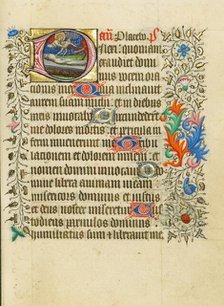 Placebo ps
Dilexi quoniam
exaudiet domi
nus vocem oratio
nis mee Quia inclinavit
aurem suam michi et in diebus
meis invocabo Circumdederunt
me dolores mortis et pericula
inferni invenerunt me Tribu
lationem et dolorem inveni et no
men domini invocavi O domi
ne libera animam meam
misericors dominus et iustus
et deus noster miseretur Cus
todiens parvulos dominus
humiliatus sum et liberavit me